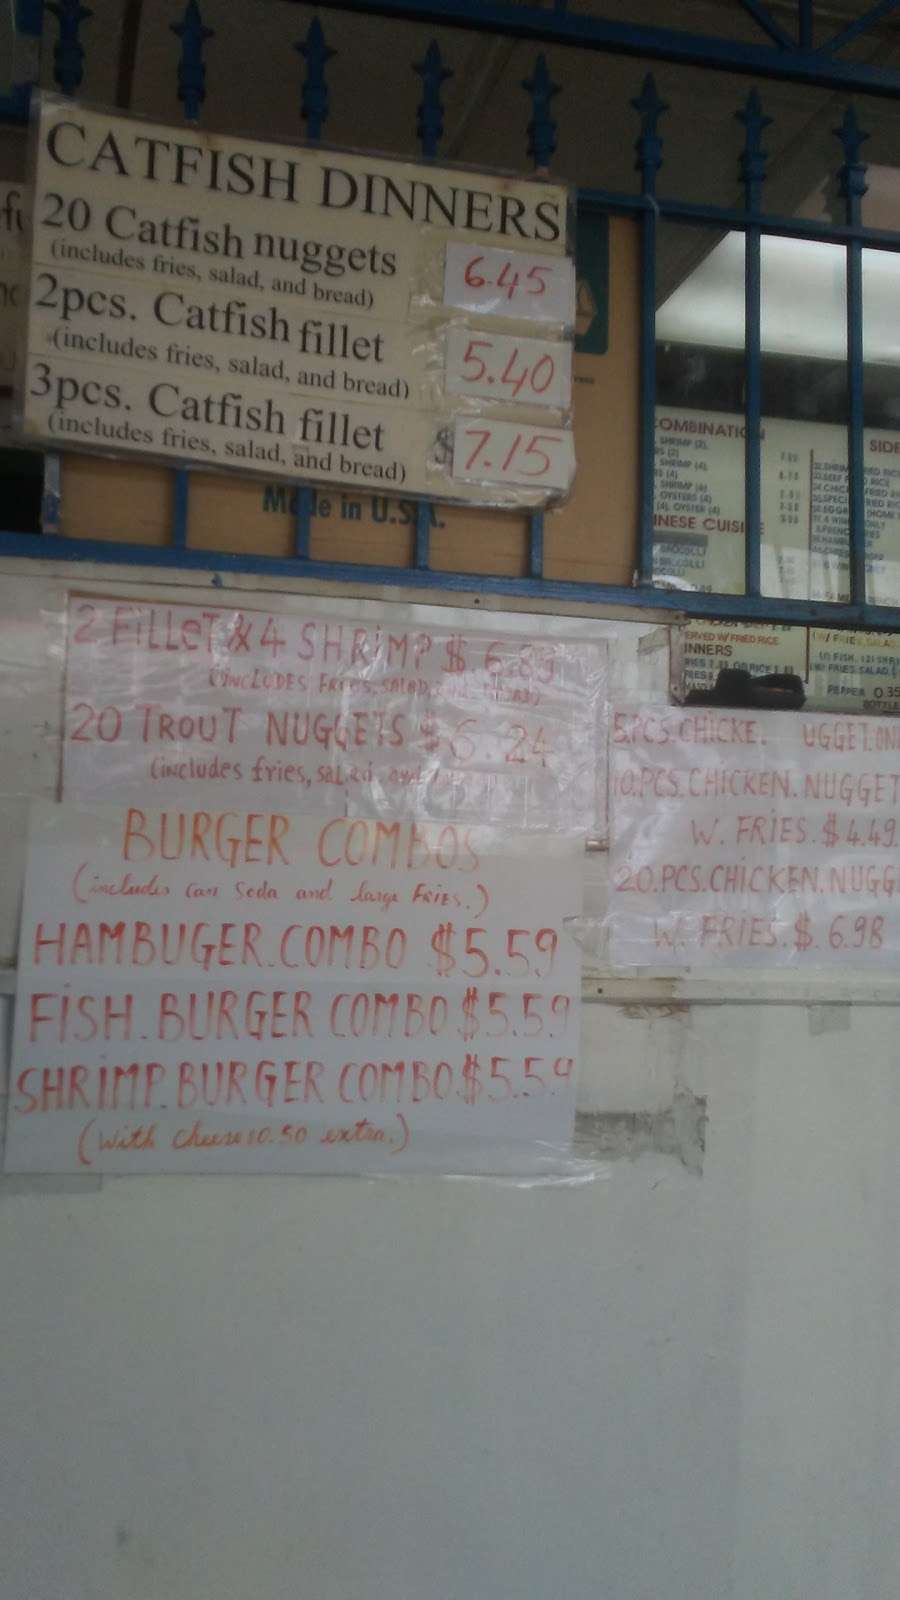 CATFISH DINNERS
20 Catfish nuggets 6.45
(includes fries, salad, and bread)
2pcs. Catfish fillet 5.40
(includes fries, salad, and bread)
3pcs. Catfish fillet $7.15
(includes fries, salad, and bread)
Made in U.S.A.
COMBINATION
SIDE
SHRIMP (2),
SHRIMP (4),
SHRIMP (4)
OYSTERS (4)
(4), OYSTER (4)
INESE CUISINE
ERVED W/FRIED RICE
INNERS
PEPPER 0.35
2 FiLLeT & 4 SHRiMP $ 6.89
(INCLUDES FRIES, SALAD,
20 TROUT NUGGETS $6.24
(includes fries, salad, and
BURGER COMBOS
(includes can Soda and large FRIES.)
HAMBUGER.COMBO $5.59
FiSH.BURGER COMBO $5.59
SHRIMP.BURGER COMBO.$5.59
(With cheese 0.50 extra.)
5.PCS.CHICKE. UGGET.ON
10.PCS.CHICKEN.NUGGET
W. FRIES.$4.49
20.PCS.CHICKEN.NUGG
W. FRIES.$.6.98